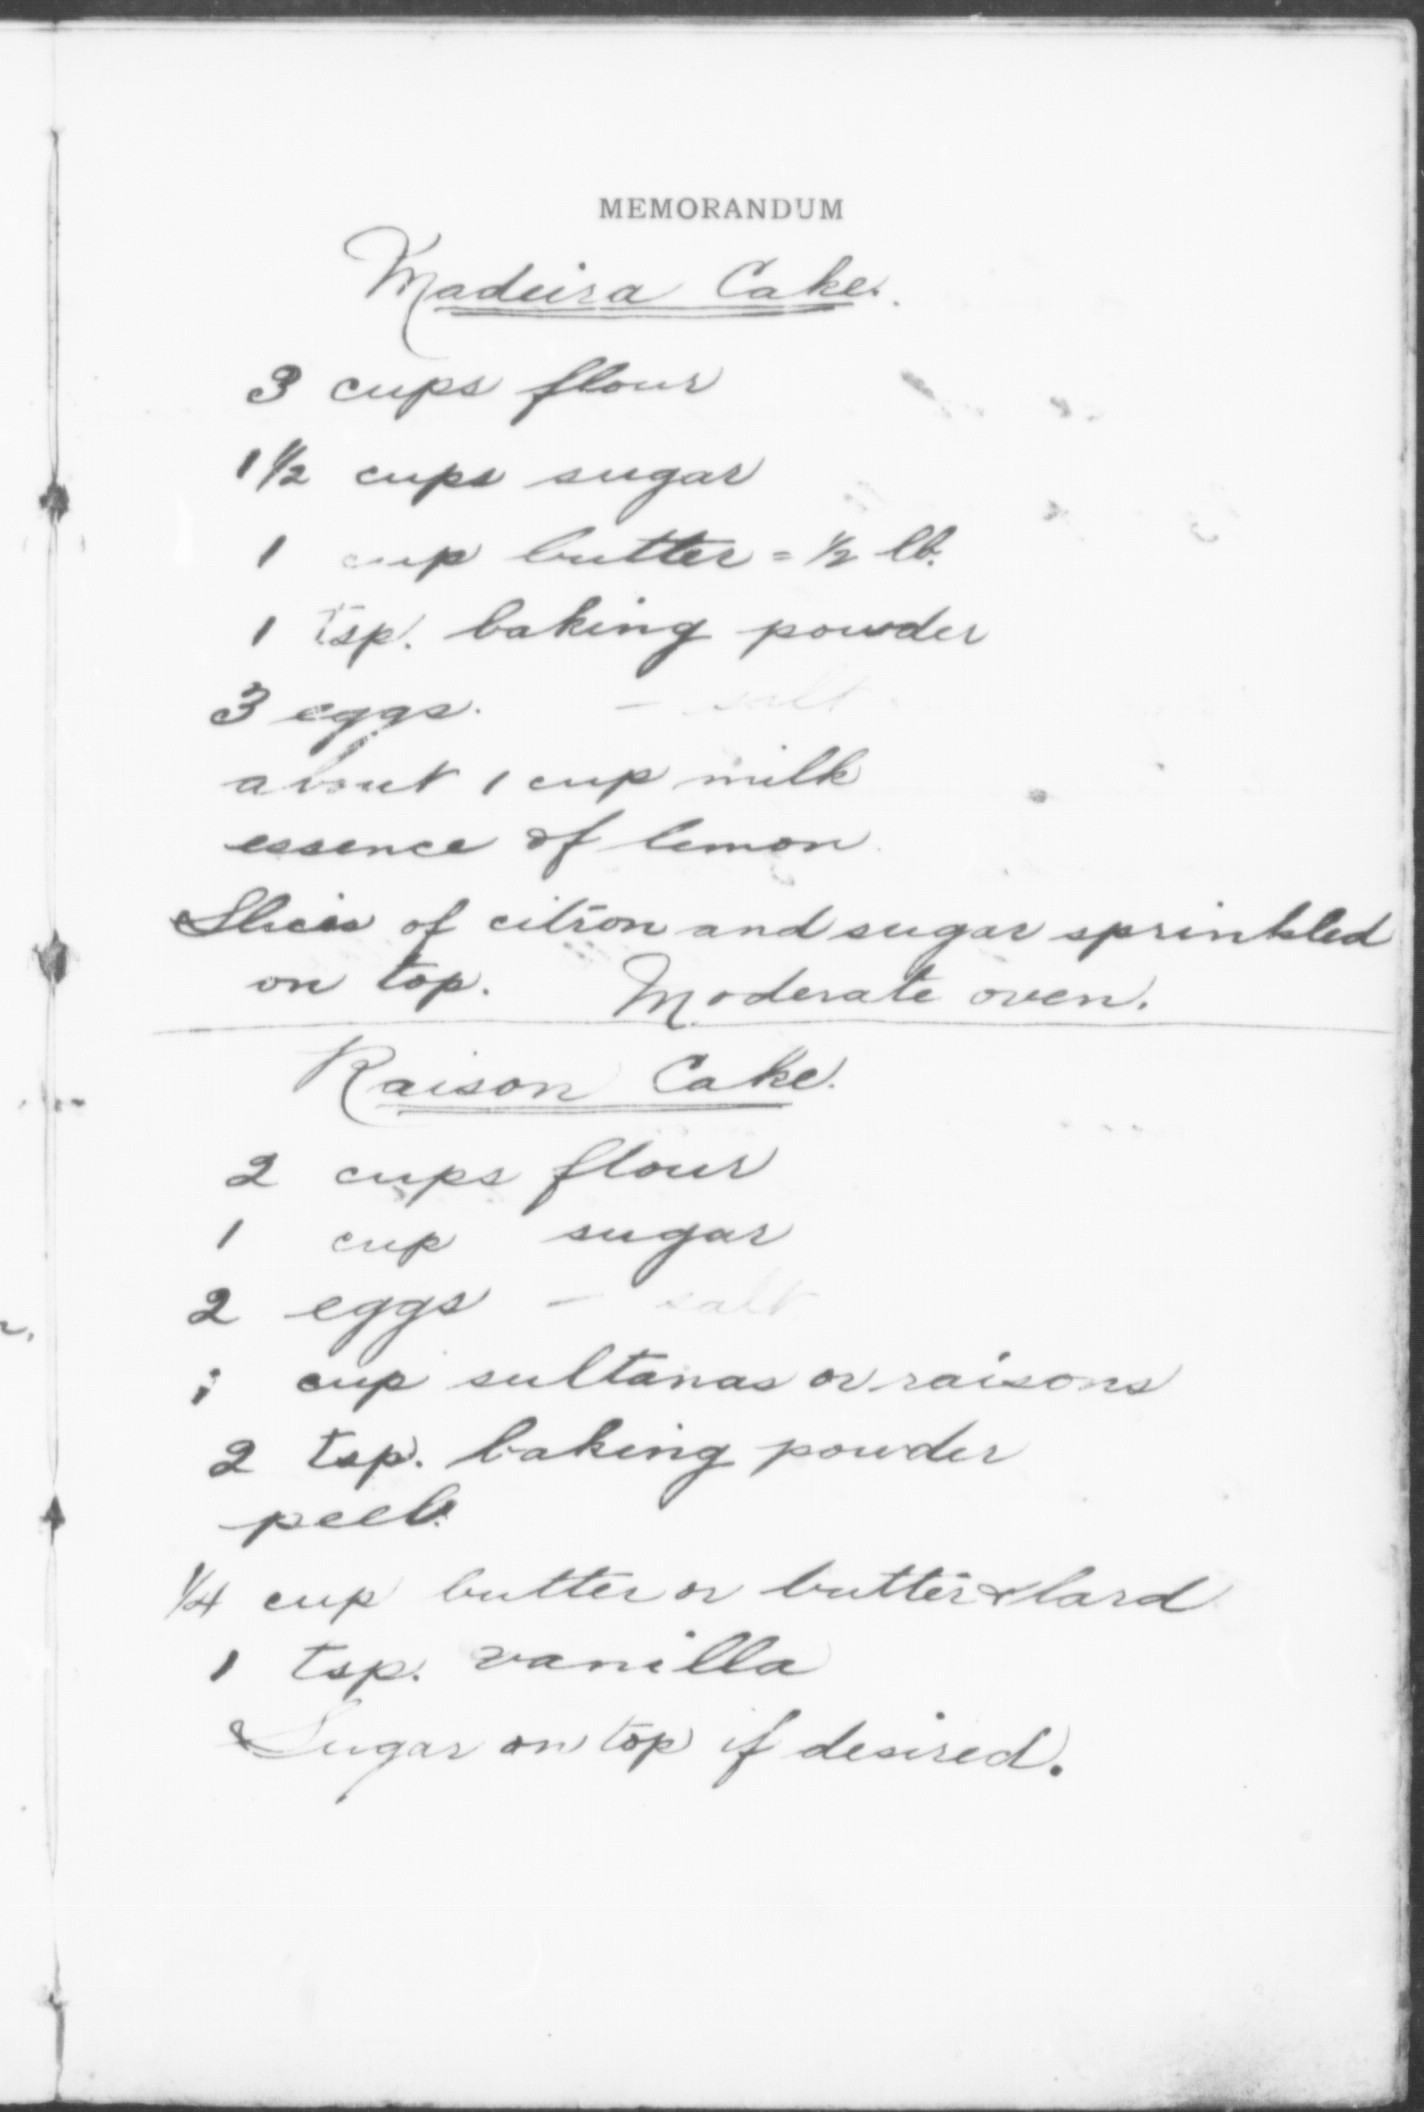 MEMORANDUM
Madeira Cake.
3 cups flour
1 1/2 cups sugar
1 cup butter = 1/2 lb.
1 tsp. baking powder
3 eggs. – salt
about 1 cup milk
essence of lemon
Slices of citron and sugar sprinkled
on top. Moderate oven.
Raison Cake.
2 cups flour
1 cup sugar
2 eggs – salt
1 cup sultanas or raisons
2 tsp. baking powder
peel.
1/4 cup butter or butter & lard
1 tsp. vanilla
Sugar on top if desired.